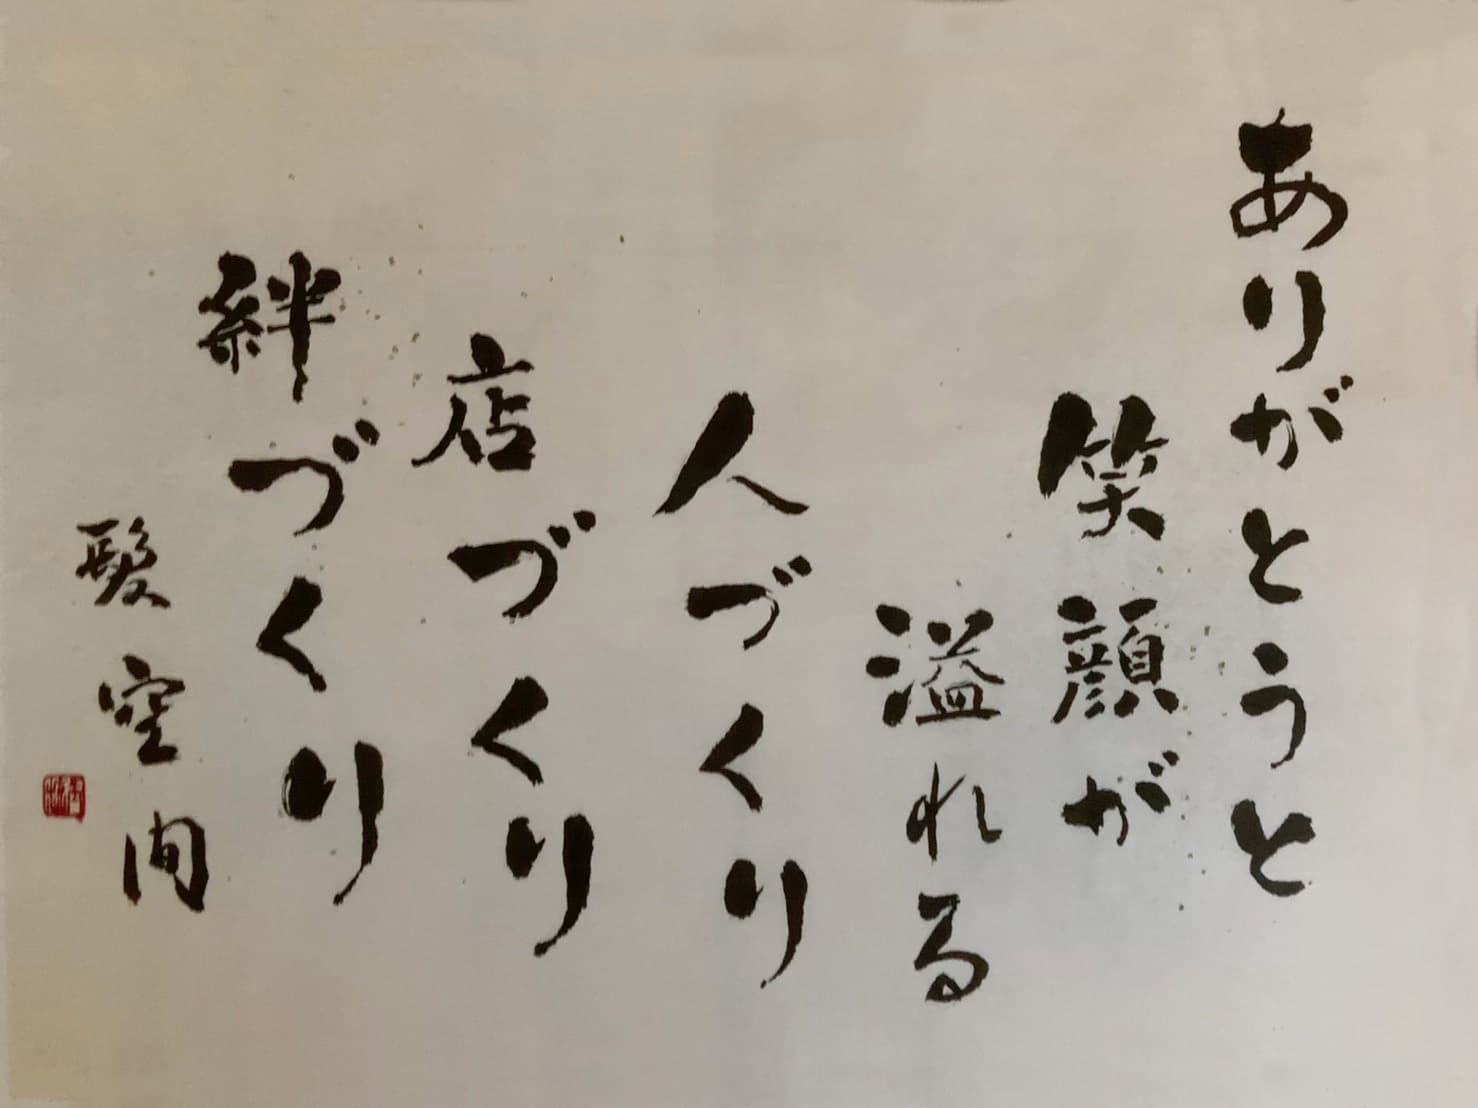 ありがとうと
笑顔が
溢れる
人づくり
店づくり
絆づくり
髪空間